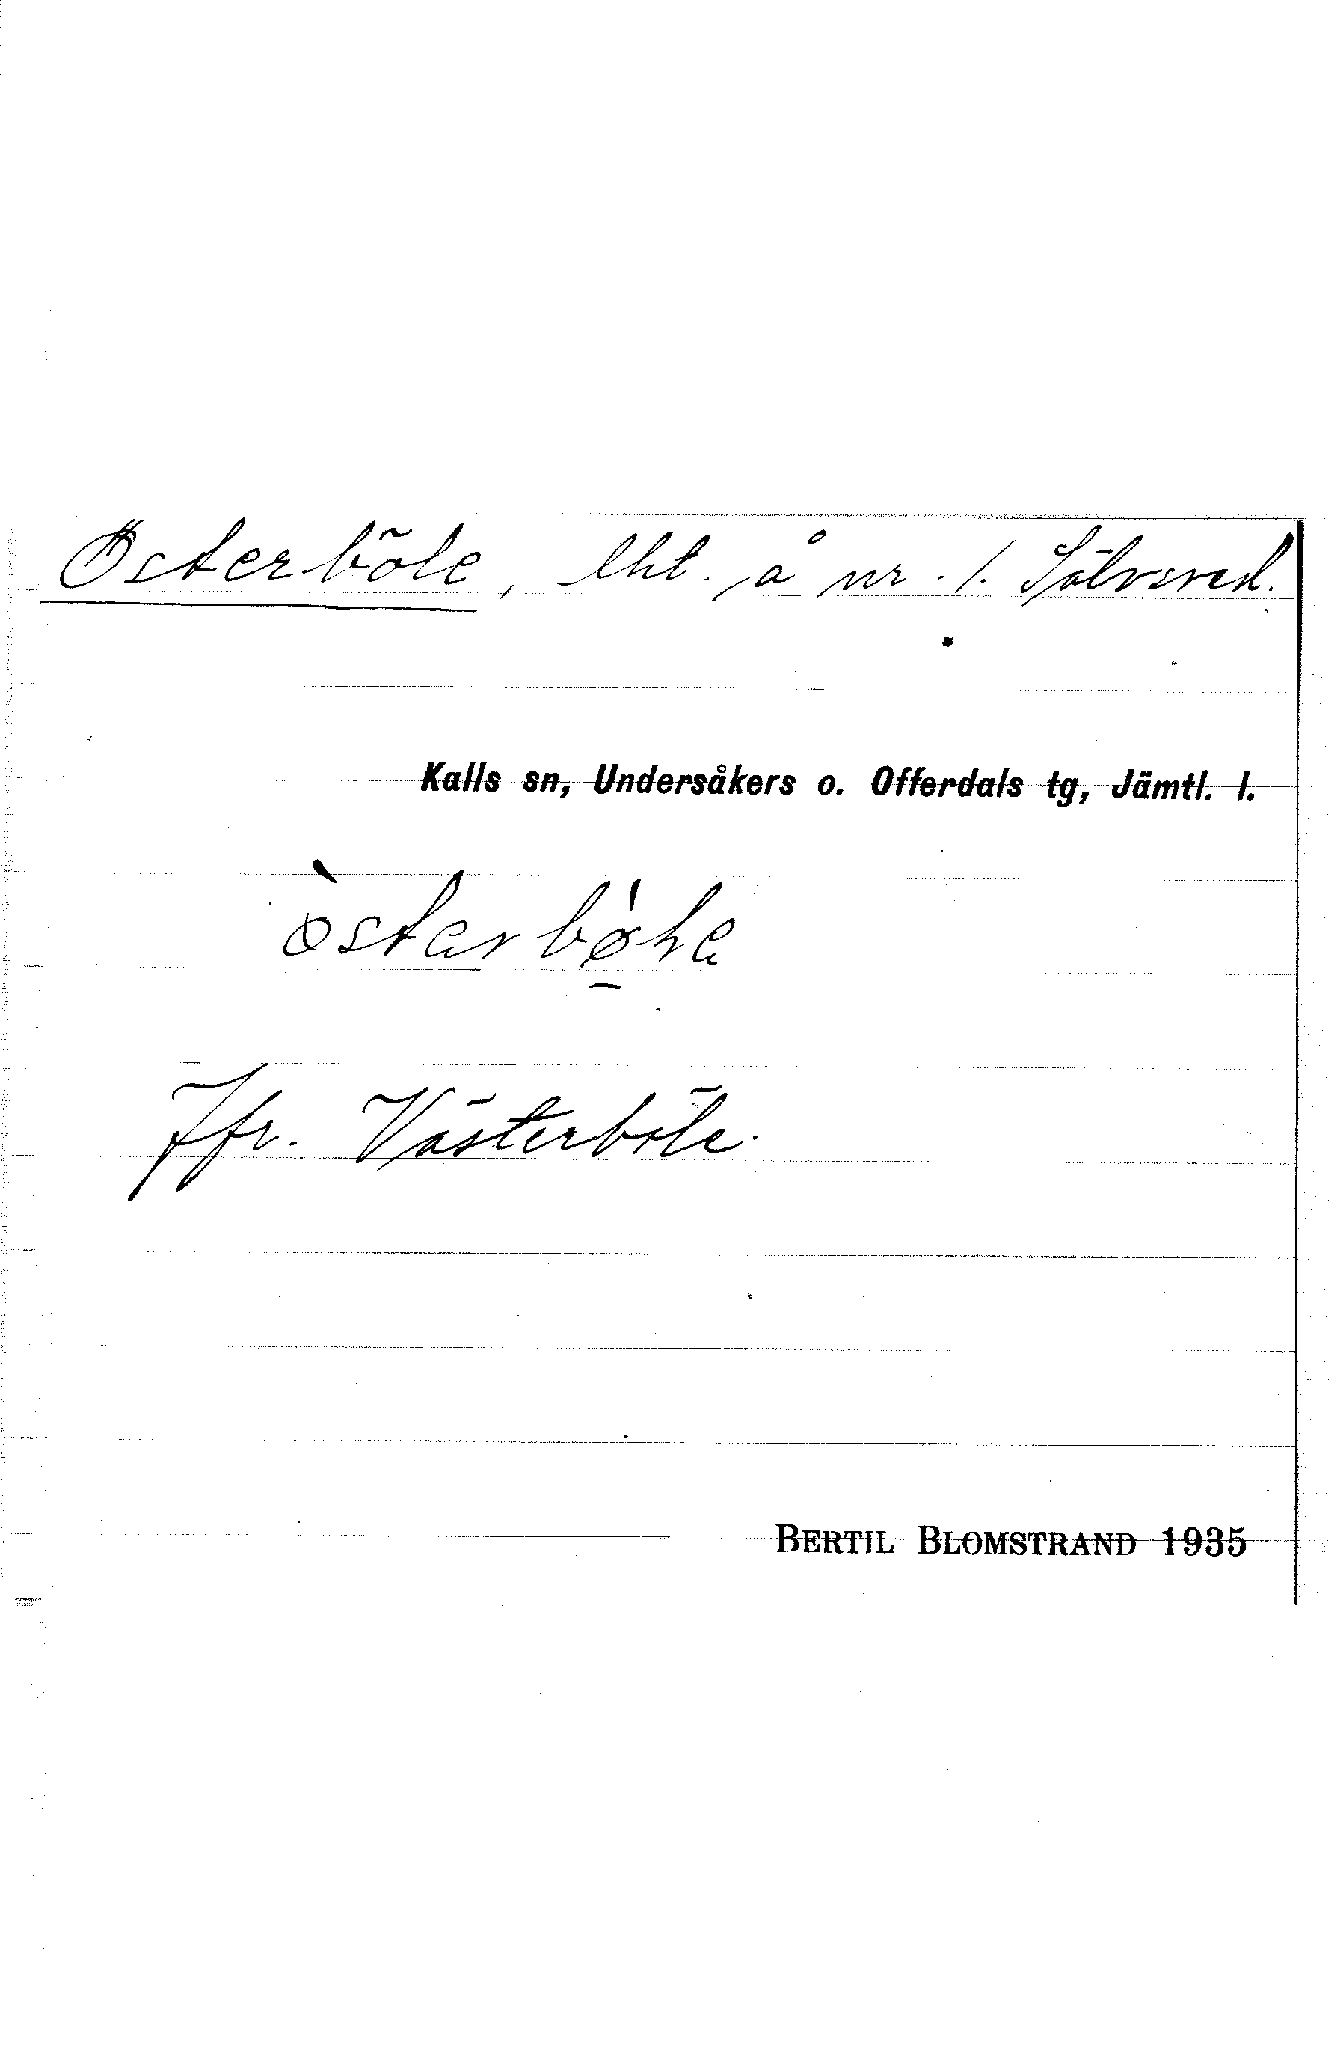 Österböle, lht. å nr. 1. Sölvsved.
Kalls sn, Undersåkers o. Offerdals tg, Jämtl. l.
Jfr. Västerböle.
BERTIL BLOMSTRAND 1935